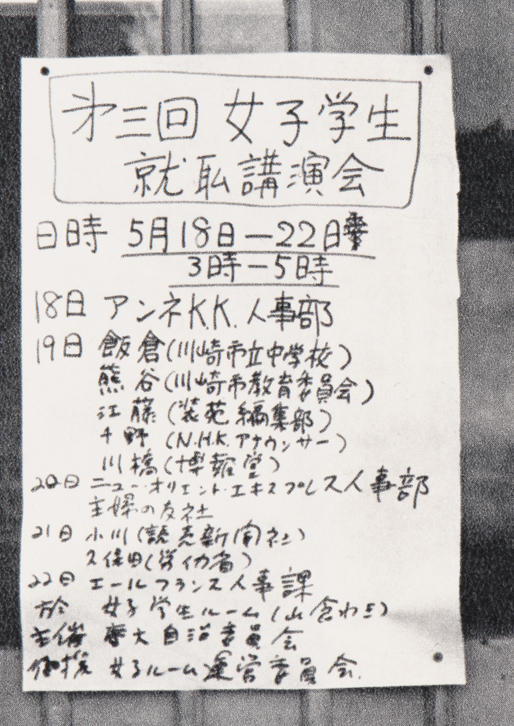 才三回 女子学生
就职講演会
日時 5月18日—22日
3時—5時
18日 アンネK.K.人事部
19日 飯倉(川崎市立中学校)
熊谷(川崎市教育委員会)
江藤(装苑編集部)
千野(N.H.K.アナウンサー)
川橋(博報堂)
20日 ニュー・オリエント・エキスプレス人事部
主婦の友社
21日 小川(読売新聞社)
久保田(労働省)
22日 エールフランス人事課
於 女子学生ルーム(山舎わき)
主催 東大自治委員会
後援 女子ルーム運営委員会.